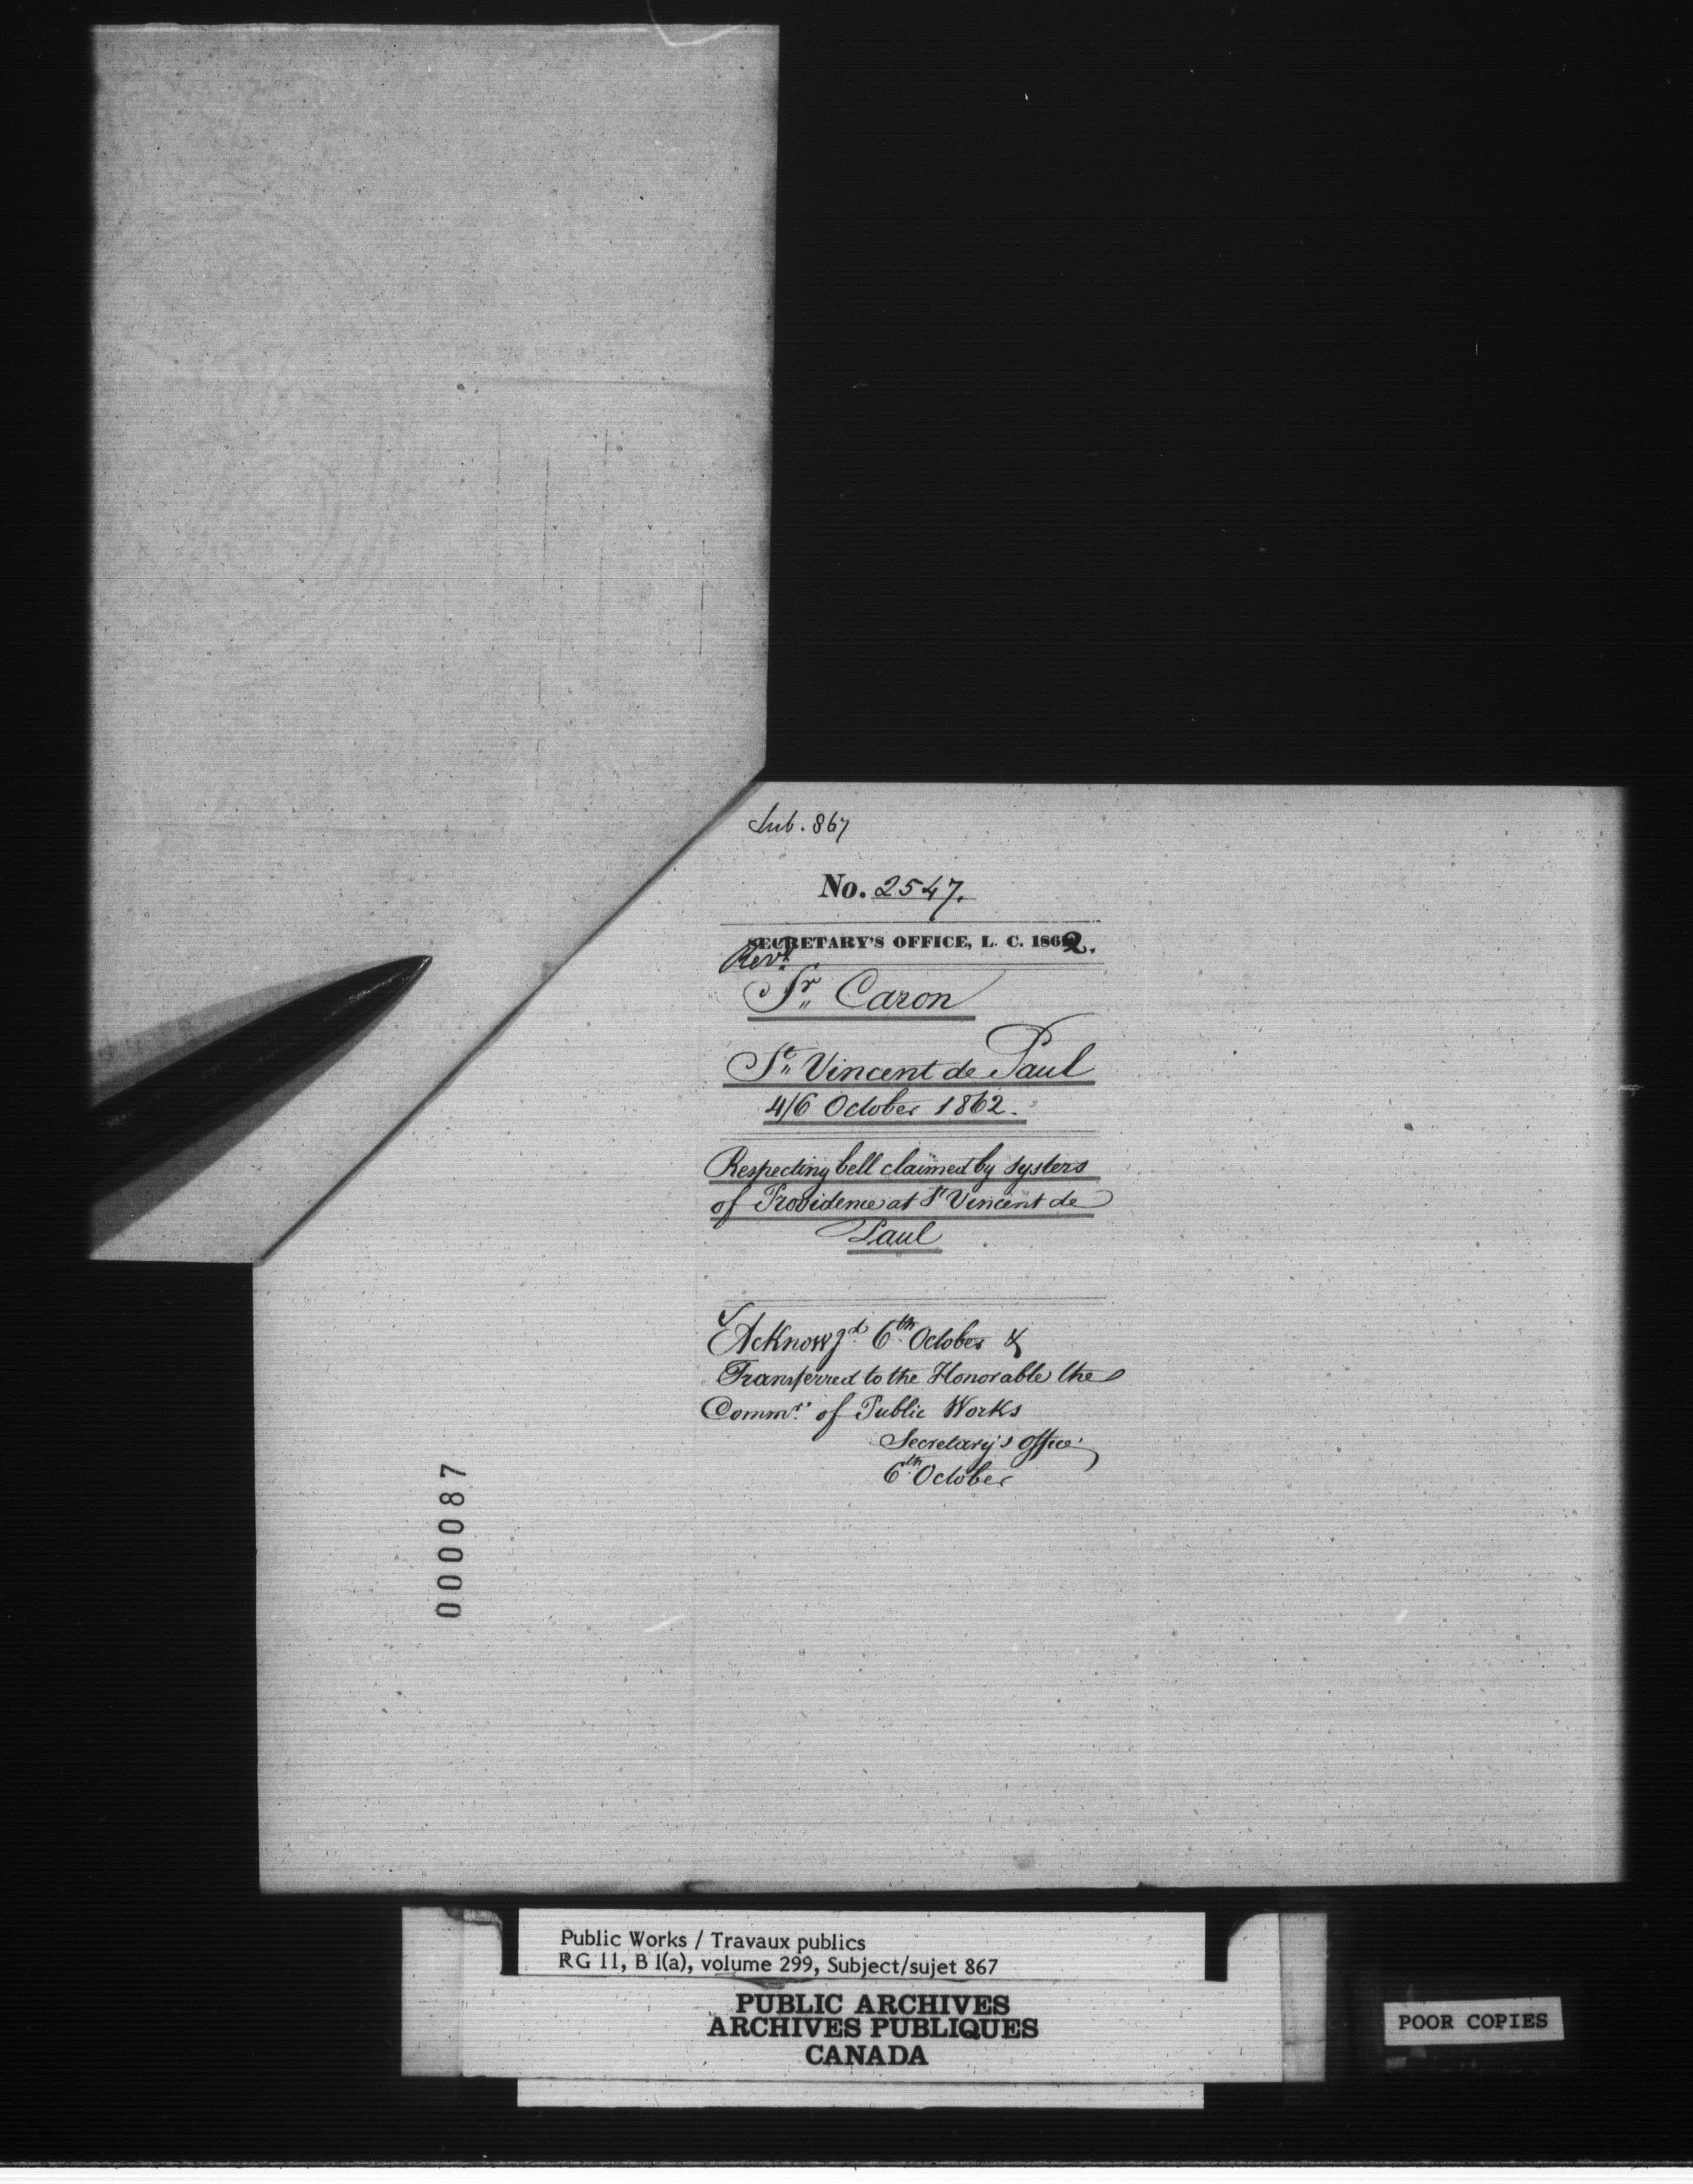 Sub. 867
No. 2547.
SECRETARY'S OFFICE, L. C. 1862.
Revd
Sr Caron
St Vincent de Paul
4/6 October 1862.
Respecting bell claimed by systers
of Providence at St Vincent de
Paul
Acknowgd 6th October &
Transferred to the Honorable the
Commr of Public Works
Secretary's Office
6th October
000087
Public Works / Travaux publics
RG 11, B 1(a), volume 299, Subject/sujet 867
PUBLIC ARCHIVES
ARCHIVES PUBLIQUES
CANADA
POOR COPIES